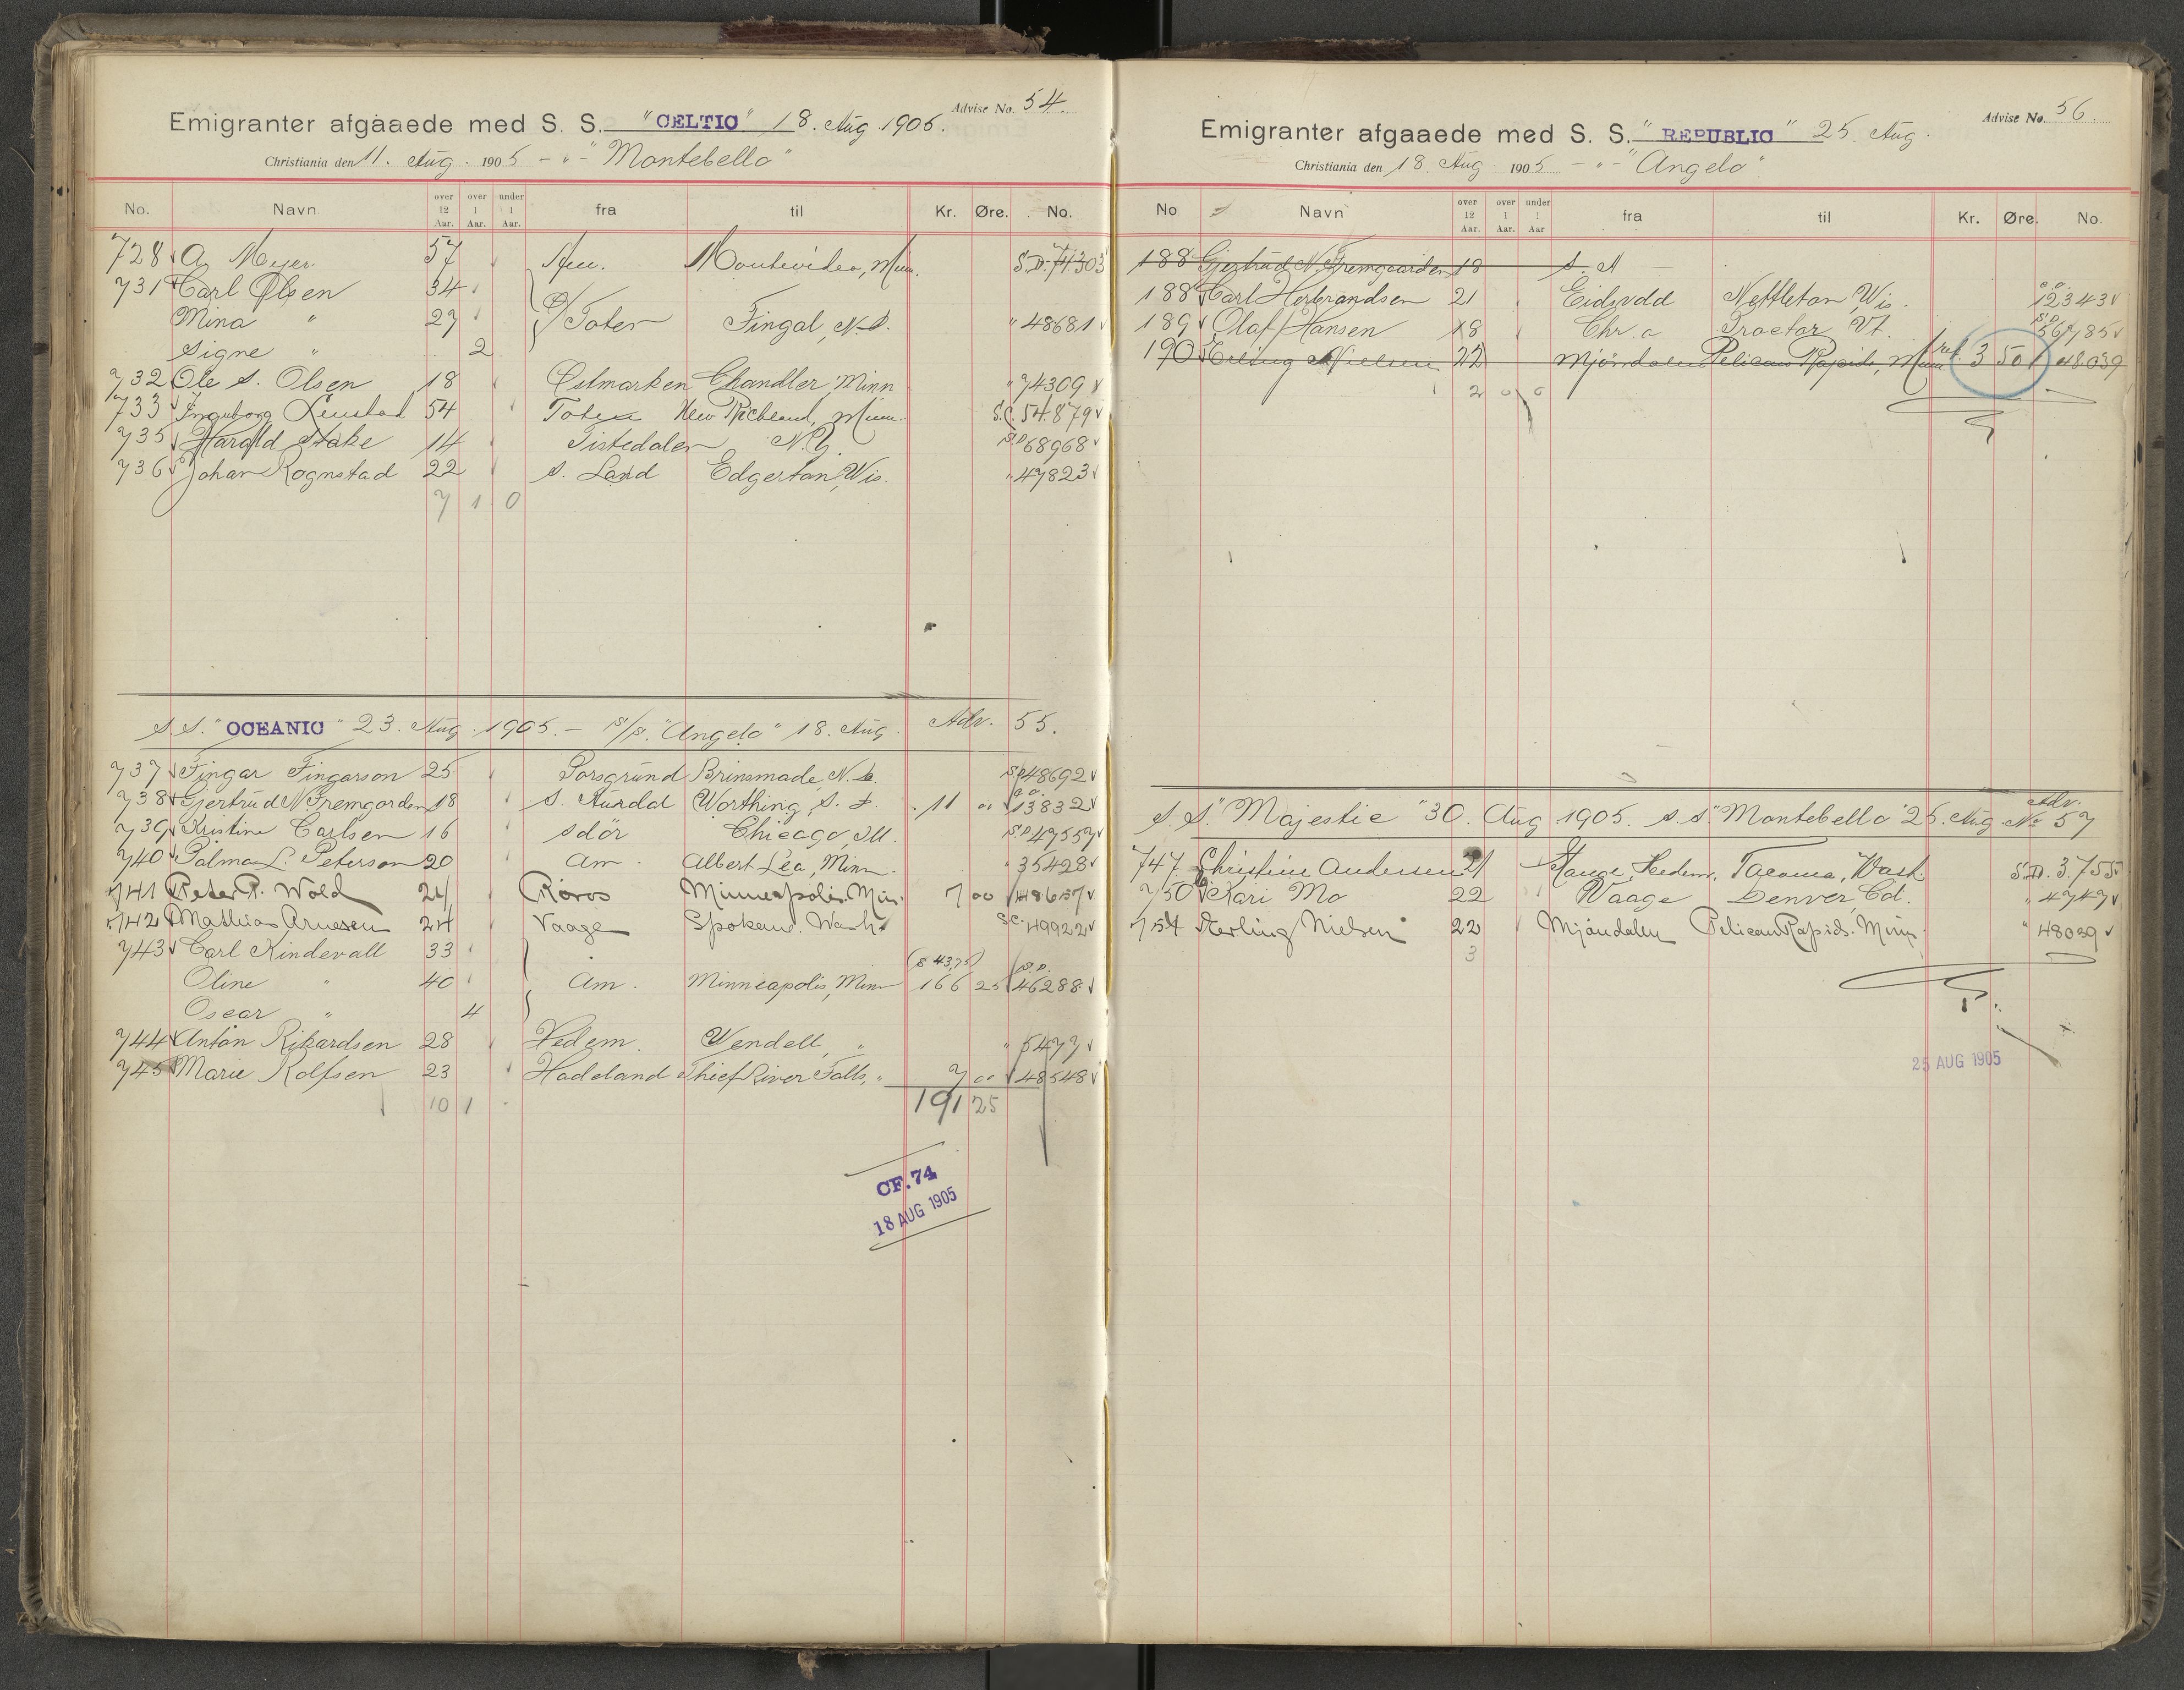 Advise No. 54.
Emigranter afgaaede med S. S. "CELTIC" 18. Aug. 1905.
Christiania den 11. Aug. 1905 - " - "Montebello"
No. Navn over 12 Aar. over 1 Aar. under 1 Aar. fra til Kr. Øre. No.
728 A. Meyer. 57 Am. Montevideo, Minn. S.D. 71303
731 Carl Olsen 34
Mina " 27 Ø/Toten Fingal, N.D. " 48681
Signe " 2
732 Ole S. Olsen 18 Østmarken Chandler, Minn " 74309
733 Ingeborg 54 Toten New Richland, Minn. S.C. 54879
735 Harald Stake 14 Tistedalen N.Y. S.D. 68968
736 Johan Rognstad 22 S. Land Edgerton, Wis. " 47823
7 1 0
S.S. "OCEANIC" 23. Aug. 1905. - S/S. "Angelo" 18. Aug. Adv. 55.
737 Fingar Fingarson 25 Porsgrund Brinsmade, N.D. S.D. 48692
738 Gjertrud N Fremgorden 18 S. Aurdal Worthing, S.D. 11 00 13832
739 Kristine Carlsen 16 Sdör Chicago, Ill. S.D. 47557
740 Palma L. Peterson 20 Am. Albert Lea, Minn. " 35428
741 Peter P. Wold 24 Röros Minneapolis. Min. 7 00 48657
742 Mathias Arnesen 24 Vaage Spokane. Wash. S.C. 49922
743 Carl Kindevall 33
($ 43,75) S.D.
Oline " 40 Am. Minneapolis, Minn 166 25 46288
Oscar " 4
744 Anton Rikardsen 28 Hedem. Wendell, " " 5477
745 Marie Rolfsen 23 Hadeland Thief River Falls, " 7 00 48548
10 1 191 25
CF. 74
18 AUG 1905
Advise No. 56.
Emigranter afgaaede med S. S. "REPUBLIC" 25. Aug.
Christiania den 18. Aug 1905 - " - "Angelo".
No Navn over 12 Aar. over 1 Aar. under 1 Aar fra til Kr. Øre. No.
188 Gjertrud N Fremgaarden 18 S. A
188 Carl Herbrandsen 21 Eidsvold Nettleton, Wis. 12343
189 Olaf Hansen 18 Chr.a Proctor, Vt. S.D. 56785
190 Erling Nielsen 22 Mjøndalen Pelican Rapids, Minn ret. 3 50 48039
2 0 0
S.S. "Majestic" 30. Aug 1905. S.S. "Montebello" 25. Aug Adv. No 57
747 Christine Andersen 21 Stange, Hedem. Tacoma, Wash. S.D. 3.755
750 Kari Mo 22 Vaage Denver, Col. " 4747
754 Aerling Nielsen 22 Mjöndalen Pelican Rapids. Minn. " 48039
3
25 AUG 1905